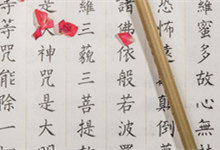 羅蜜多故心無
恐怖遠顛倒
諸佛依般若波羅
羅三藐三菩提故
是大神咒是大
等等咒能除一